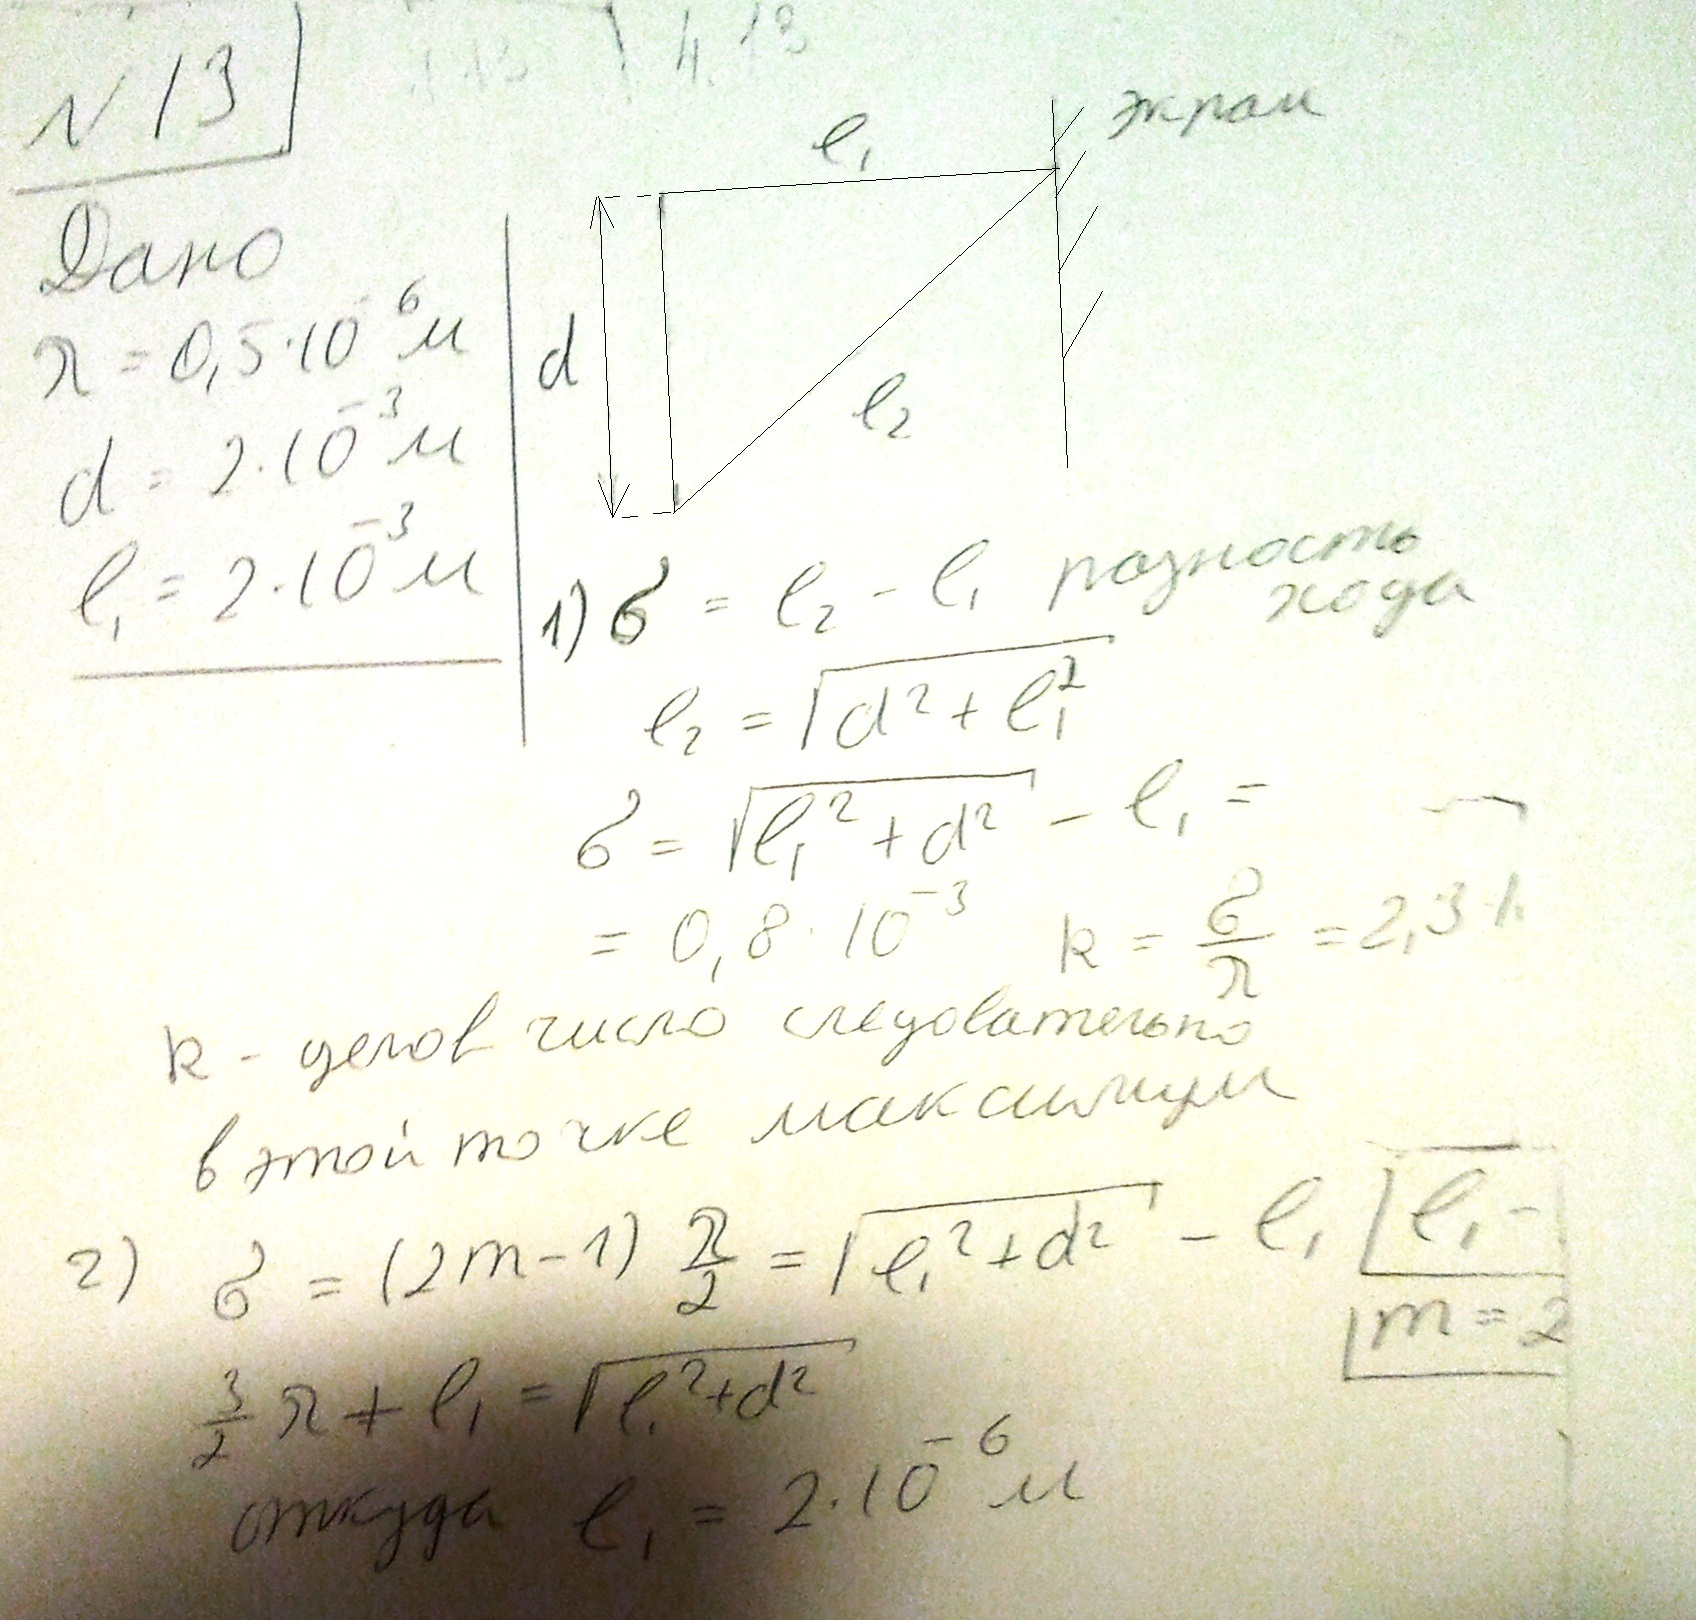 N 13
4.13
экран
l₁
Дано
λ = 0,5·10⁻⁶ м
d
d = 2·10⁻³ м
l₂
l₁ = 2·10⁻³ м
1) δ = l₂ - l₁ разность хода
l₂ = √(d² + l₁²)
δ = √(l₁² + d²) - l₁ =
= 0,8·10⁻³ k = δ/λ = 2,3·1
k - целое число следовательно
в этой точке максимум
2) δ = (2m-1) λ/2 = √(l₁² + d²) - l₁ l₁ -
m = 2
3/2 λ + l₁ = √(l₁² + d²)
откуда l₁ = 2·10⁻⁶ м